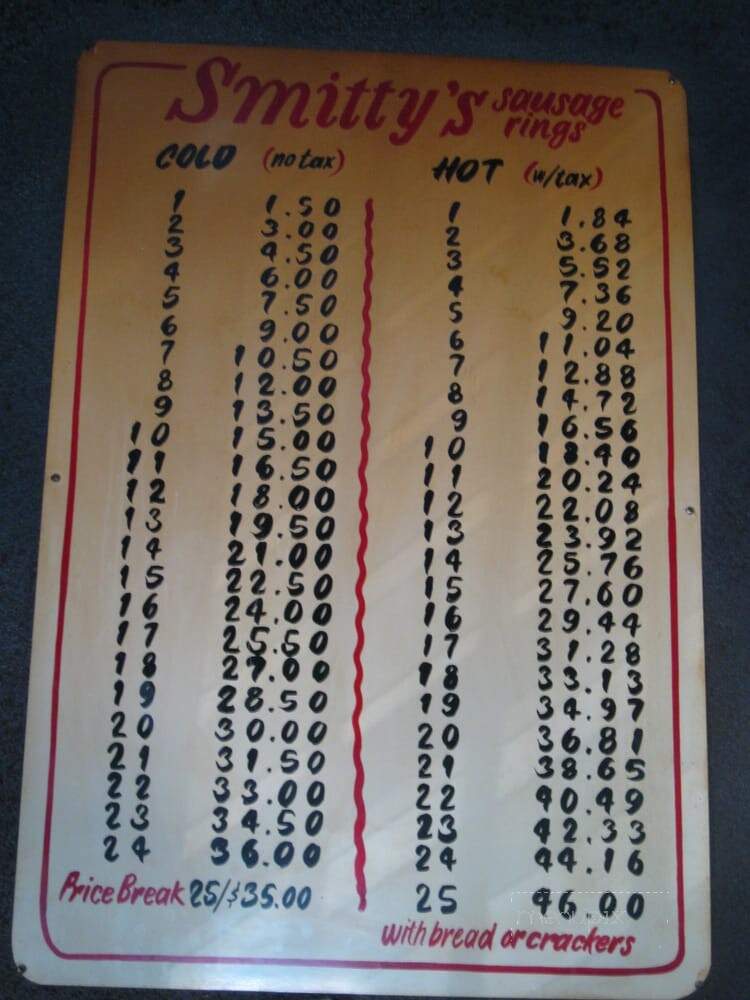 Smitty's sausage rings
COLD (no tax) HOT (w/tax)
1 1.50 1 1.84
2 3.00 2 3.68
3 4.50 3 5.52
4 6.00 4 7.36
5 7.50 5 9.20
6 9.00 6 11.04
7 10.50 7 12.88
8 12.00 8 14.72
9 13.50 9 16.56
10 15.00 10 18.40
11 16.50 11 20.24
12 18.00 12 22.08
13 19.50 13 23.92
14 21.00 14 25.76
15 22.50 15 27.60
16 24.00 16 29.44
17 25.50 17 31.28
18 27.00 18 33.13
19 28.50 19 34.97
20 30.00 20 36.81
21 31.50 21 38.65
22 33.00 22 40.49
23 34.50 23 42.33
24 36.00 24 44.16
Price Break 25/$35.00 25 46.00
with bread or crackers